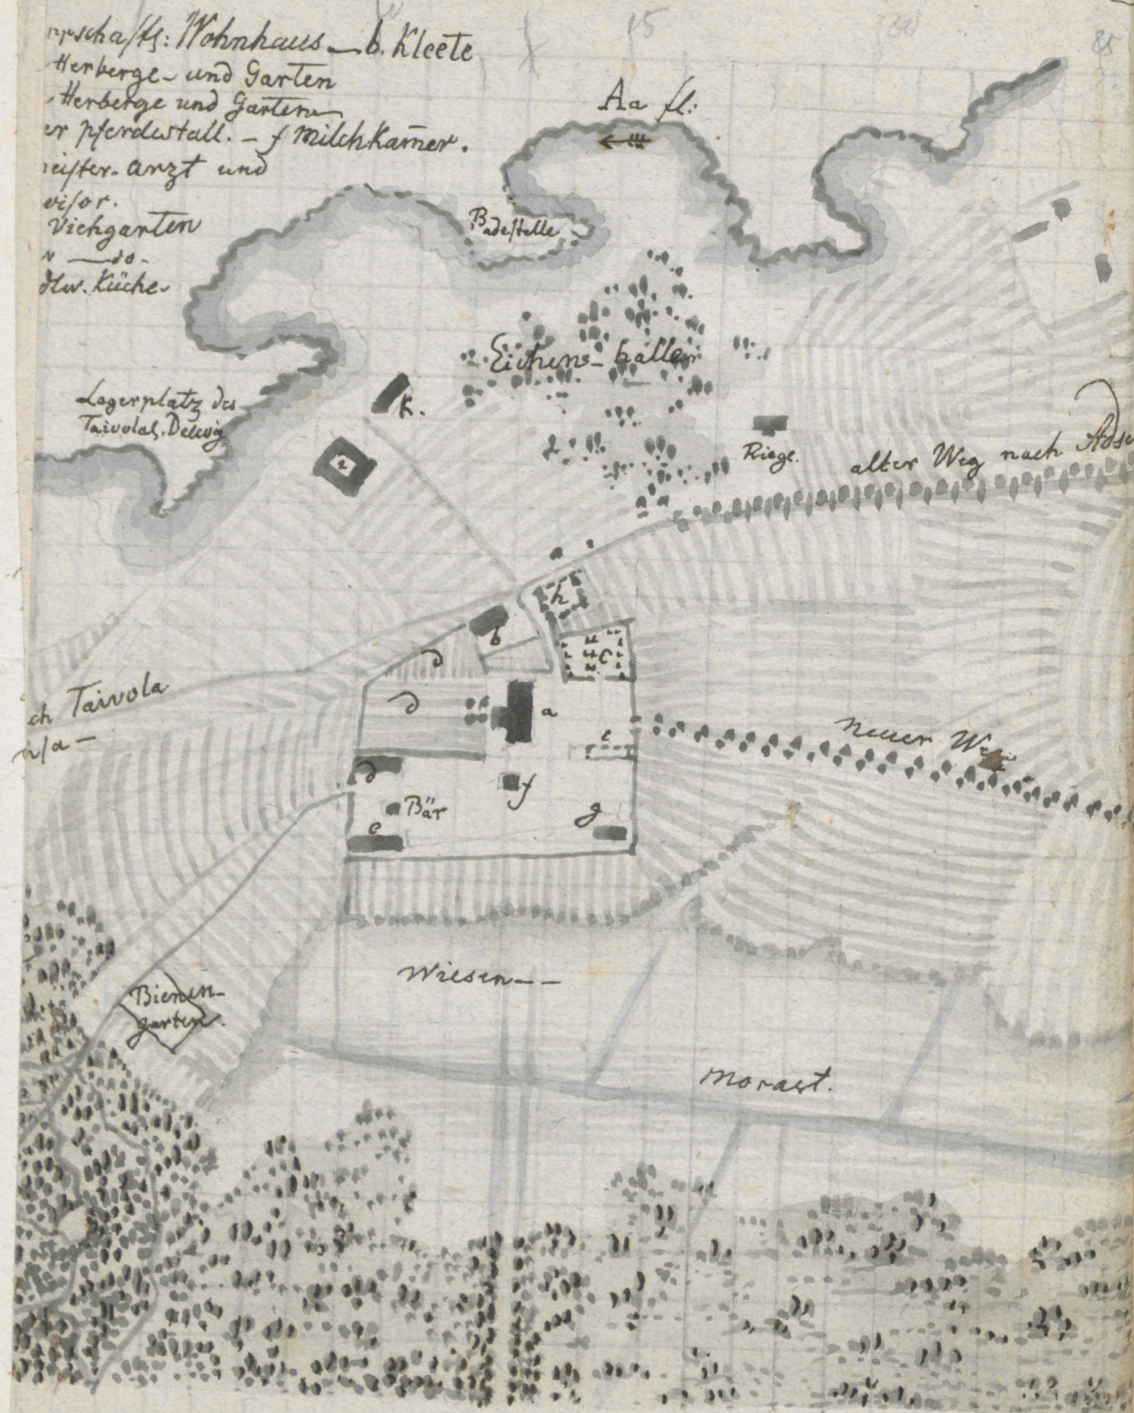 rrschaftl: Wohnhaus — b. Kleete
Herberge - und Garten
Herberge und Garten
er pferdestall. - f Milchkam̄er.
meister-arzt und
visor.
Viehgarten
" — do -
Küche
15
30
Aa fl:
Badestelle
Eichens-
Lagerplatz des
k.
i
Riege.
alter Weg nach
h
b
c
d
d
a
ch Taivola
Neuer Weg
i
d
f
Bär
g
e
Wiesen--
Bienen-
garten.
Morast.